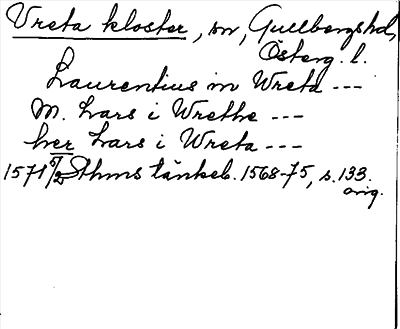 Vreta kloster, sn, Gullbergs hd,
Österg. l.
Laurentius in Wreta ---
M. Lars i Wrethe ---
her Lars i Wreta ---
1571 5/2 Sthms tänkeb. 1568-75, s. 133.
orig.